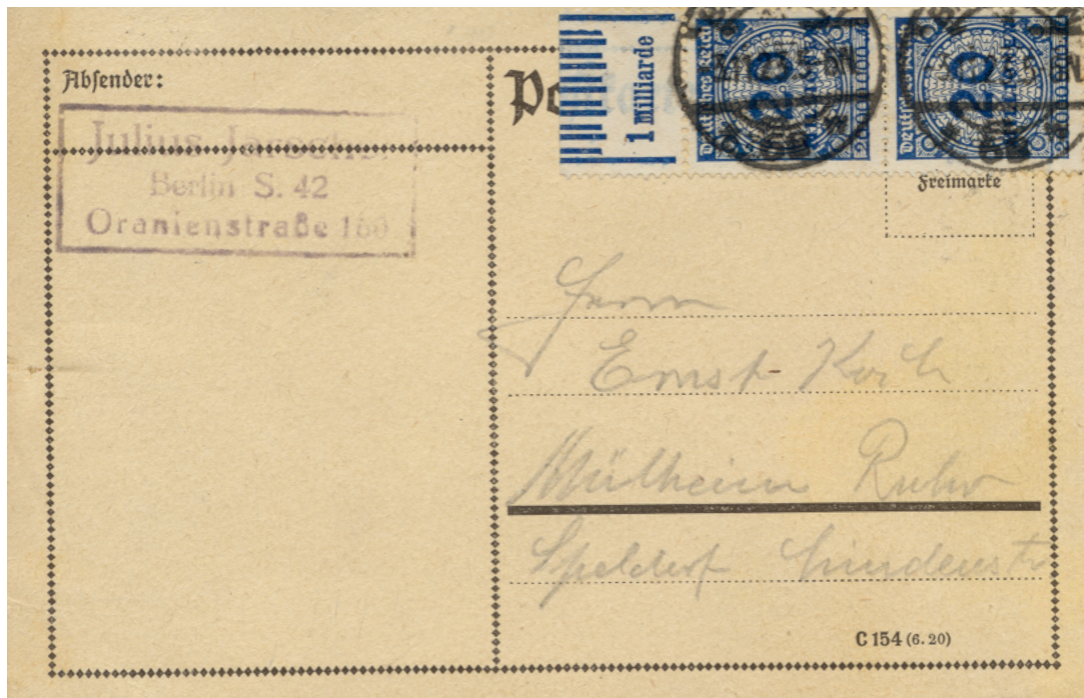 Absender:
Julius
Berlin S. 42
Oranienstraße 160
1 Milliarde
Deutsches Reich
20
Deutsches Reich
20
Freimarke
Herrn
Ernst Koch
Mülheim Ruhr
Speldorf
C 154 (6. 20)